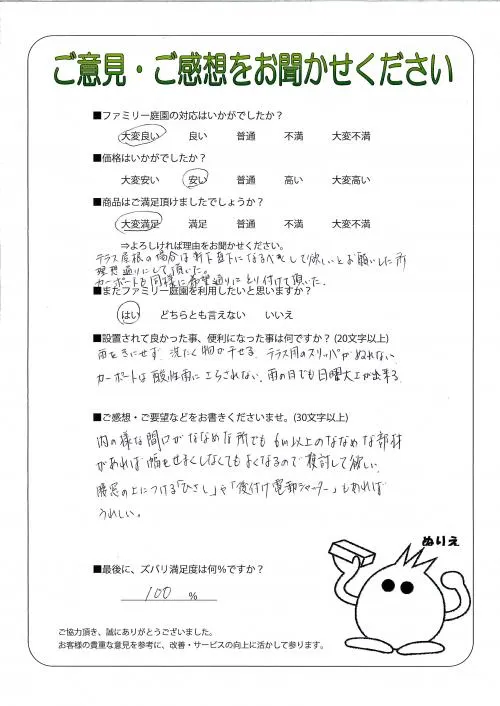 ご意見・ご感想をお聞かせください
■ファミリー庭園の対応はいかがでしたか？
大変良い 良い 普通 不満 大変不満
■価格はいかがでしたか？
大変安い 安い 普通 高い 大変高い
■商品はご満足頂けましたでしょうか？
大変満足 満足 普通 不満 大変不満
⇒よろしければ理由をお聞かせください。
テラス屋根の場合は軒下真下になるべくして欲しいとお願いした所
理想通りにして頂いた。
カーポートも同様に希望通りにとり付けて頂いた.
■またファミリー庭園を利用したいと思いますか？
はい どちらとも言えない いいえ
■設置されて良かった事、便利になった事は何ですか？(20文字以上)
雨をきにせず 洗たく物が干せる. テラス用のスリッパがぬれない
カーポートは酸性雨にさらされない. 雨の日でも日曜大工が出来る
■ご感想・ご要望などをお書きくださいませ。(30文字以上)
内の様な間口がななめな所でも 6m以上のななめな部材
があれば幅をせまくしなくてもよくなるので検討して欲しい.
腰窓の上につける「ひさし」や「後付け電動シャッター」もあれば
うれしい。
ぬりえ
■最後に、ズバリ満足度は何%ですか？
100 %
ご協力頂き、誠にありがとうございました。
お客様の貴重な意見を参考に、改善・サービスの向上に活かして参ります。